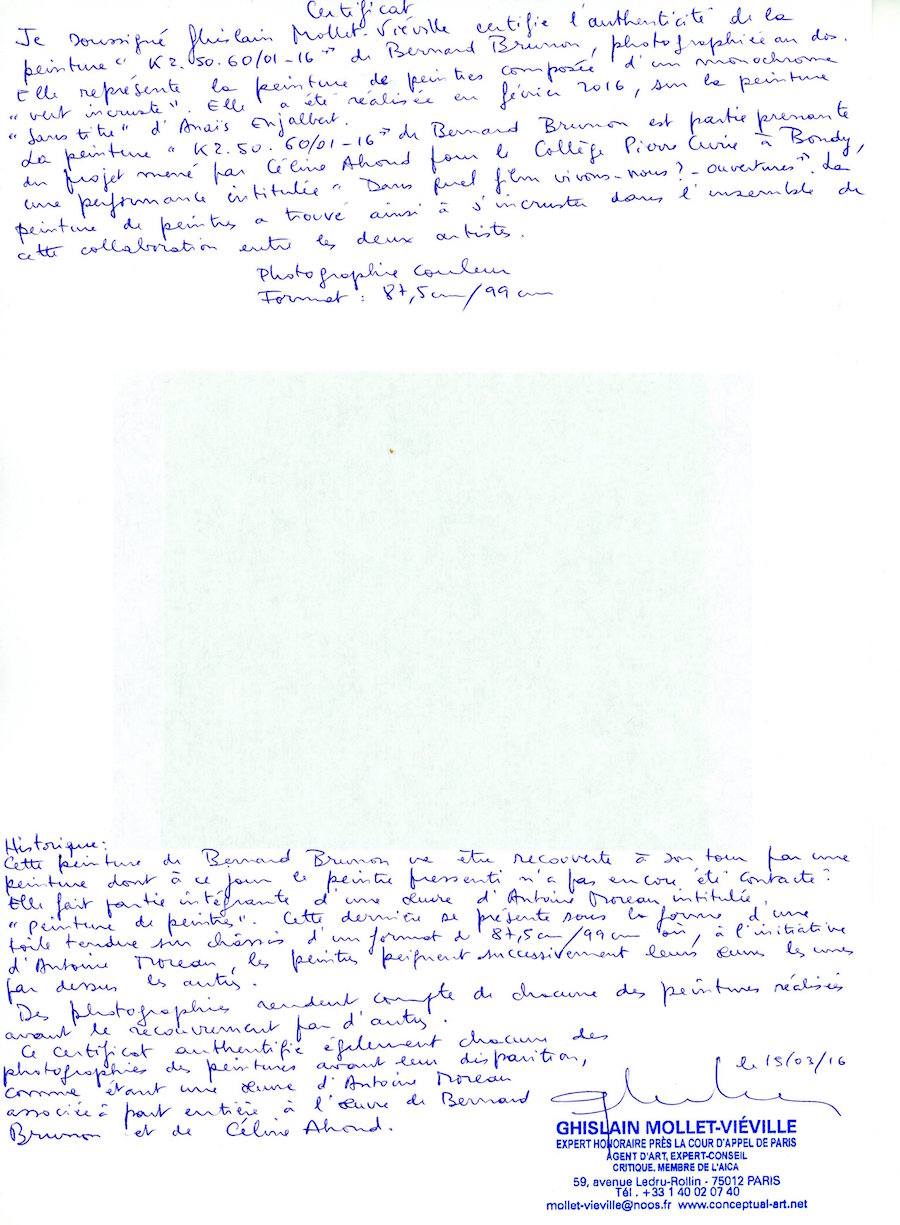 Certificat
Je soussigné Ghislain Mollet-Viéville certifie l'authenticité de la
peinture " K2.50.60/01-16 " de Bernard Brunon, photographiée au dos.
Elle représente la peinture de peintres composée d'un monochrome
" vert incruste". Elle a été réalisée en février 2016, sur la peinture
" Sans titre " d'Anaïs Enjalbert.
La peinture " K2.50.60/01-16 " de Bernard Brunon est partie prenante
du projet mené par Céline Ahond pour le Collège Pierre Curie à Bondy,
une performance intitulée " Dans quel film vivons-nous ? - ouvertures ". La
peinture de peintres a trouvé ainsi à s'incruster dans l'ensemble de
cette collaboration entre les deux artistes.
Photographie couleur
Format : 87,5cm/99cm
Historique:
Cette peinture de Bernard Brunon va être recouverte à son tour par une
peinture dont à ce jour le peintre pressenti n'a pas encore été contacté.
Elle fait partie intégrante d'une œuvre d'Antoine Moreau intitulée,
" Peinture de peintres". Cette dernière se présente sous la forme d'une
toile tendue sur châssis d'un format de 87,5cm/99cm où, à l'initiative
d'Antoine Moreau, les peintres peignent successivement leurs œuvres les unes
par dessus les autres.
Des photographies rendent compte de chacune des peintures réalisées
avant le recouvrement par d'autres.
Ce certificat authentifie également chacune des
photographies des peintures avant leur disparition,
comme étant une œuvre d'Antoine Moreau
associée à part entière à l'œuvre de Bernard
Brunon et de Céline Ahond.
le 15/03/16
GHISLAIN MOLLET-VIÉVILLE
EXPERT HONORAIRE PRÈS LA COUR D'APPEL DE PARIS
AGENT D'ART, EXPERT-CONSEIL
CRITIQUE. MEMBRE DE L'AICA
59, avenue Ledru-Rollin - 75012 PARIS
Tél . +33 1 40 02 07 40
mollet-vieville@noos.fr www.conceptual-art.net